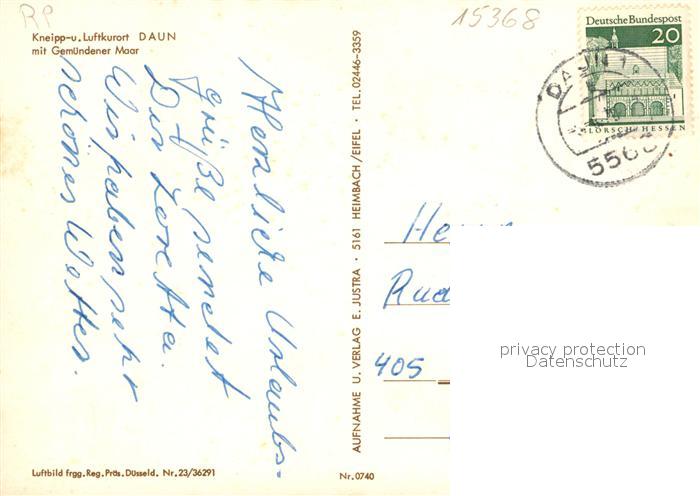 RP
15368
Kneipp-u. Luftkurort DAUN
mit Gemündener Maar
Deutsche Bundespost
20
LORSCH/HESSEN
DAUN
5568
Herzliche Urlaubs-
grüße sendet
Dir Loretta.
Wir haben sehr
schönes Wetter.
AUFNAHME U. VERLAG E. JUSTRA · 5161 HEIMBACH/EIFEL · TEL. 02446-3359
405
privacy protection
Datenschutz
Luftbild frgg. Reg. Präs. Düsseld. Nr. 23/36291
Nr. 0740